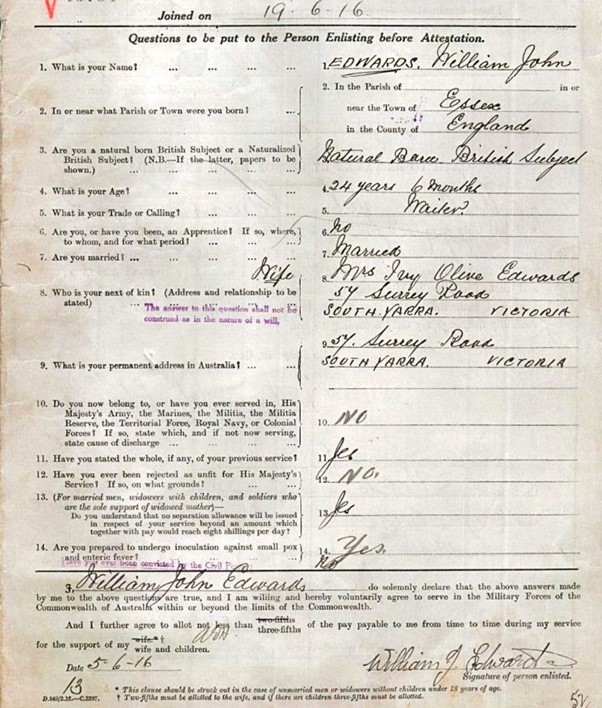 Joined on 19-6-16
Questions to be put to the Person Enlisting before Attestation.
1. What is your Name? ... ... ... 1. EDWARDS. William John
2. In or near what Parish or Town were you born? ... 2. In the Parish of in or
near the Town of Essex
in the County of England
3. Are you a natural born British Subject or a Naturalized
British Subject? (N.B.—If the latter, papers to be
shown.) ... ... ... ... Natural Born British Subject
4. What is your Age? ... ... ... 4. 24 years 6 months
5. What is your Trade or Calling? ... ... 5. Waiter
6. Are you, or have you been, an Apprentice? If so, where,
to whom, and for what period? ... ... 6. No
7. Are you married? ... ... ... ... 7. Married
Wife
8. Who is your next of kin? (Address and relationship to be
stated) 8. Mrs Ivy Olive Edwards
57 Surrey Road
SOUTH YARRA. VICTORIA
The answer to this question shall not be
construed as in the nature of a will.
9. What is your permanent address in Australia? ... 9. 57. Surrey Road
SOUTH YARRA. VICTORIA
10. Do you now belong to, or have you ever served in, His
Majesty's Army, the Marines, the Militia, the Militia
Reserve, the Territorial Force, Royal Navy, or Colonial
Forces? If so, state which, and if not now serving,
state cause of discharge ... ... ... 10. NO
11. Have you stated the whole, if any, of your previous service? 11. Yes
12. Have you ever been rejected as unfit for His Majesty's
Service? If so, on what grounds? ... ... 12. NO.
13. (For married men, widowers with children, and soldiers who
are the sole support of widowed mother)—
Do you understand that no separation allowance will be issued
in respect of your service beyond an amount which
together with pay would reach eight shillings per day? 13. Yes
14. Are you prepared to undergo inoculation against small pox
and enteric fever? 14. Yes.
Have you ever been convicted by the Civil No
I, William John Edwards do solemnly declare that the above answers made
by me to the above questions are true, and I am willing and hereby voluntarily agree to serve in the Military Forces of the
Commonwealth of Australia within or beyond the limits of the Commonwealth.
And I further agree to allot not less than two-fifths three-fifths of the pay payable to me from time to time during my service
for the support of my wife * † wife and children.
Date 5-6-16 William J Edwards
Signature of person enlisted.
13
D.849/2.16.—C.2397.
* This clause should be struck out in the case of unmarried men or widowers without children under 18 years of age.
† Two-fifths must be allotted to the wife, and if there are children three-fifths must be allotted.